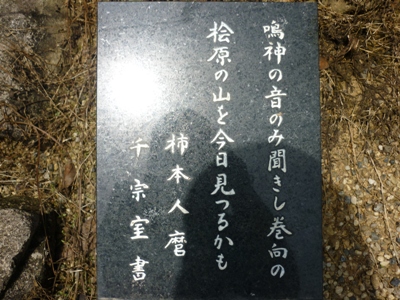 鳴神の音のみ聞きし巻向の
桧原の山を今日見つるかも
柿本人麿
千宗室書